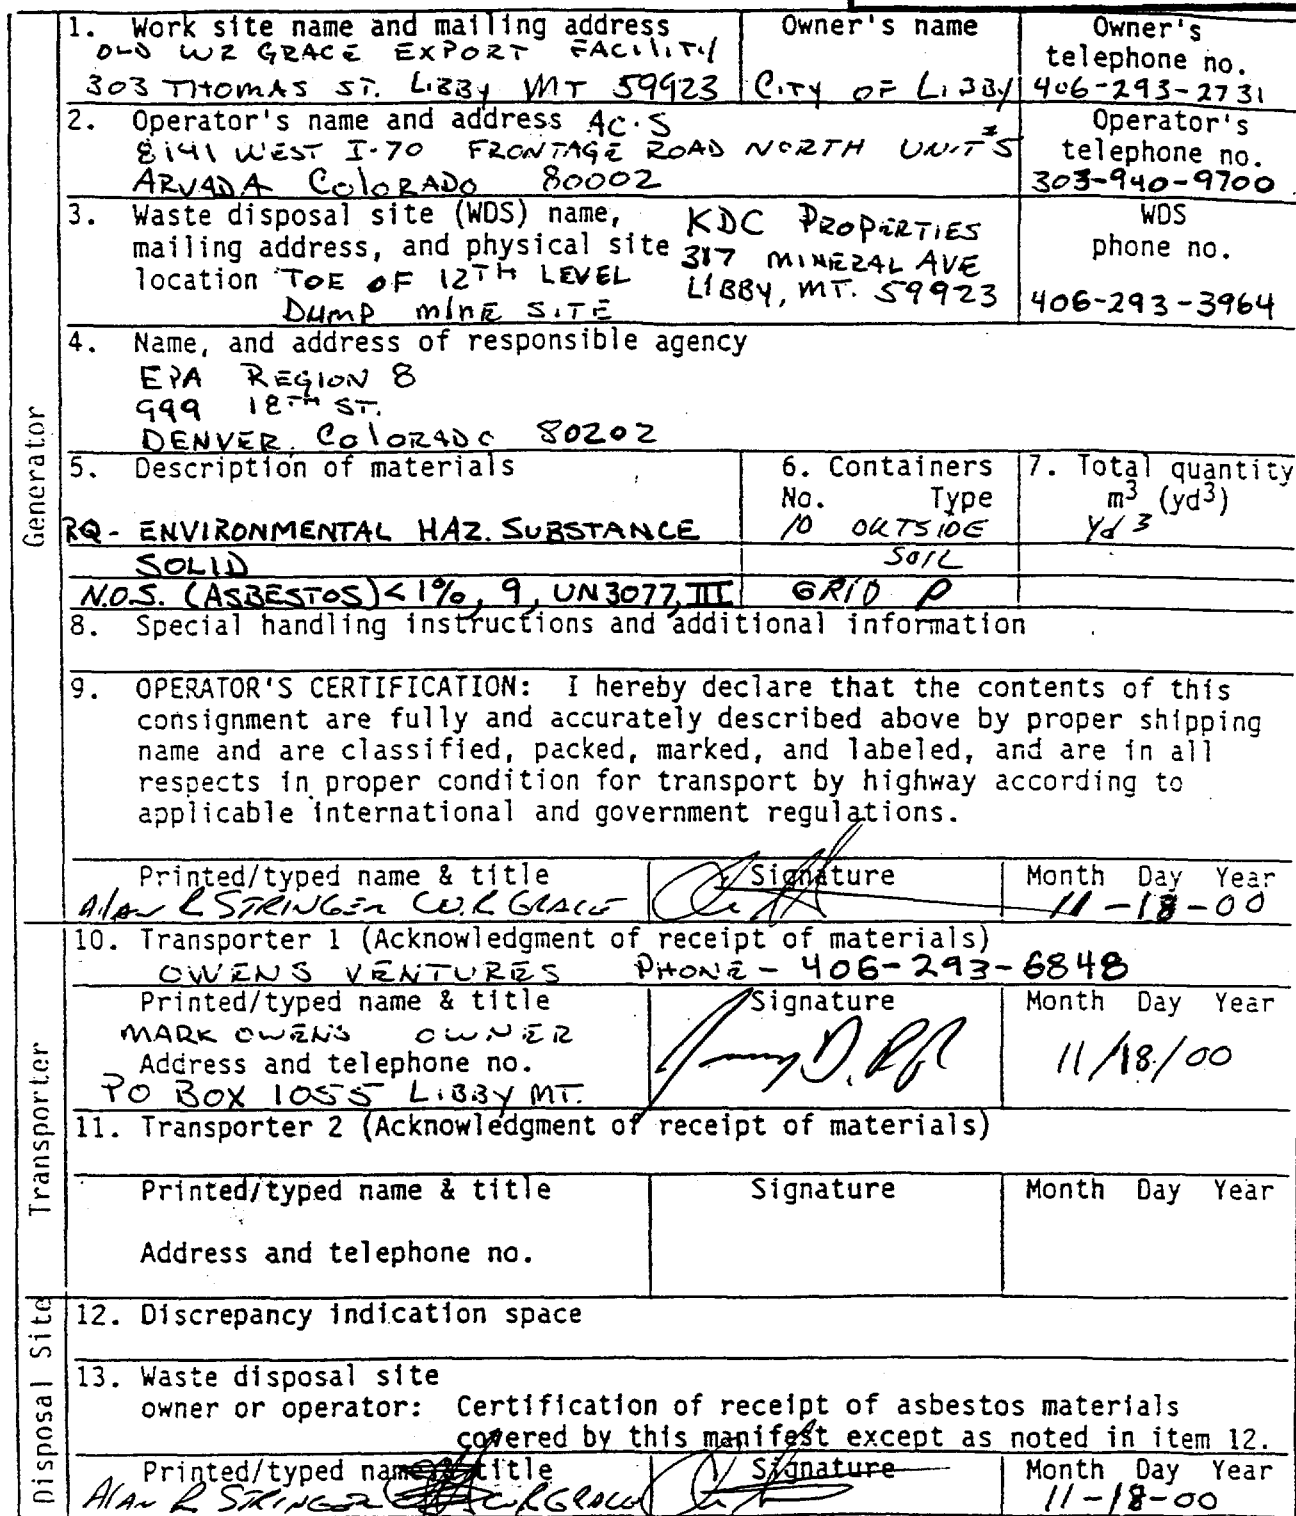 1. Work site name and mailing address
OLD WR GRACE EXPORT FACILITY
303 THOMAS ST. LIBBY MT 59923
Owner's name
CITY OF LIBBY
Owner's
telephone no.
406-293-2731
2. Operator's name and address AC.S
8141 WEST I-70 FRONTAGE ROAD NORTH UNIT #5
ARVADA COLORADO 80002
Operator's
telephone no.
303-940-9700
3. Waste disposal site (WDS) name,
mailing address, and physical site
location TOE OF 12TH LEVEL
DUMP MINE SITE
KDC PROPERTIES
317 MINERAL AVE
LIBBY, MT. 59923
WDS
phone no.
406-293-3964
4. Name, and address of responsible agency
EPA REGION 8
999 18TH ST.
DENVER, COLORADO 80202
Generator
5. Description of materials
RQ- ENVIRONMENTAL HAZ. SUBSTANCE
SOLID
N.O.S. (ASBESTOS) <1%, 9, UN3077, III
6. Containers
No. Type
10 OUTSIDE
SOIL
GRID P
7. Total quantity
m3 (yd3)
Yd3
8. Special handling instructions and additional information
9. OPERATOR'S CERTIFICATION: I hereby declare that the contents of this
consignment are fully and accurately described above by proper shipping
name and are classified, packed, marked, and labeled, and are in all
respects in proper condition for transport by highway according to
applicable international and government regulations.
Printed/typed name & title
Alan R STRINGER W.R GRACE
Signature
Month Day Year
11-18-00
10. Transporter 1 (Acknowledgment of receipt of materials)
OWENS VENTURES PHONE - 406-293-6848
Printed/typed name & title
MARK OWENS OWNER
Address and telephone no.
PO BOX 1055 LIBBY MT.
Signature
Month Day Year
11/18/00
Transporter
11. Transporter 2 (Acknowledgment of receipt of materials)
Printed/typed name & title
Signature
Month Day Year
Address and telephone no.
Disposal Site
12. Discrepancy indication space
13. Waste disposal site
owner or operator: Certification of receipt of asbestos materials
covered by this manifest except as noted in item 12.
Printed/typed name & title
Alan R STRINGER W R GRACE
Signature
Month Day Year
11-18-00